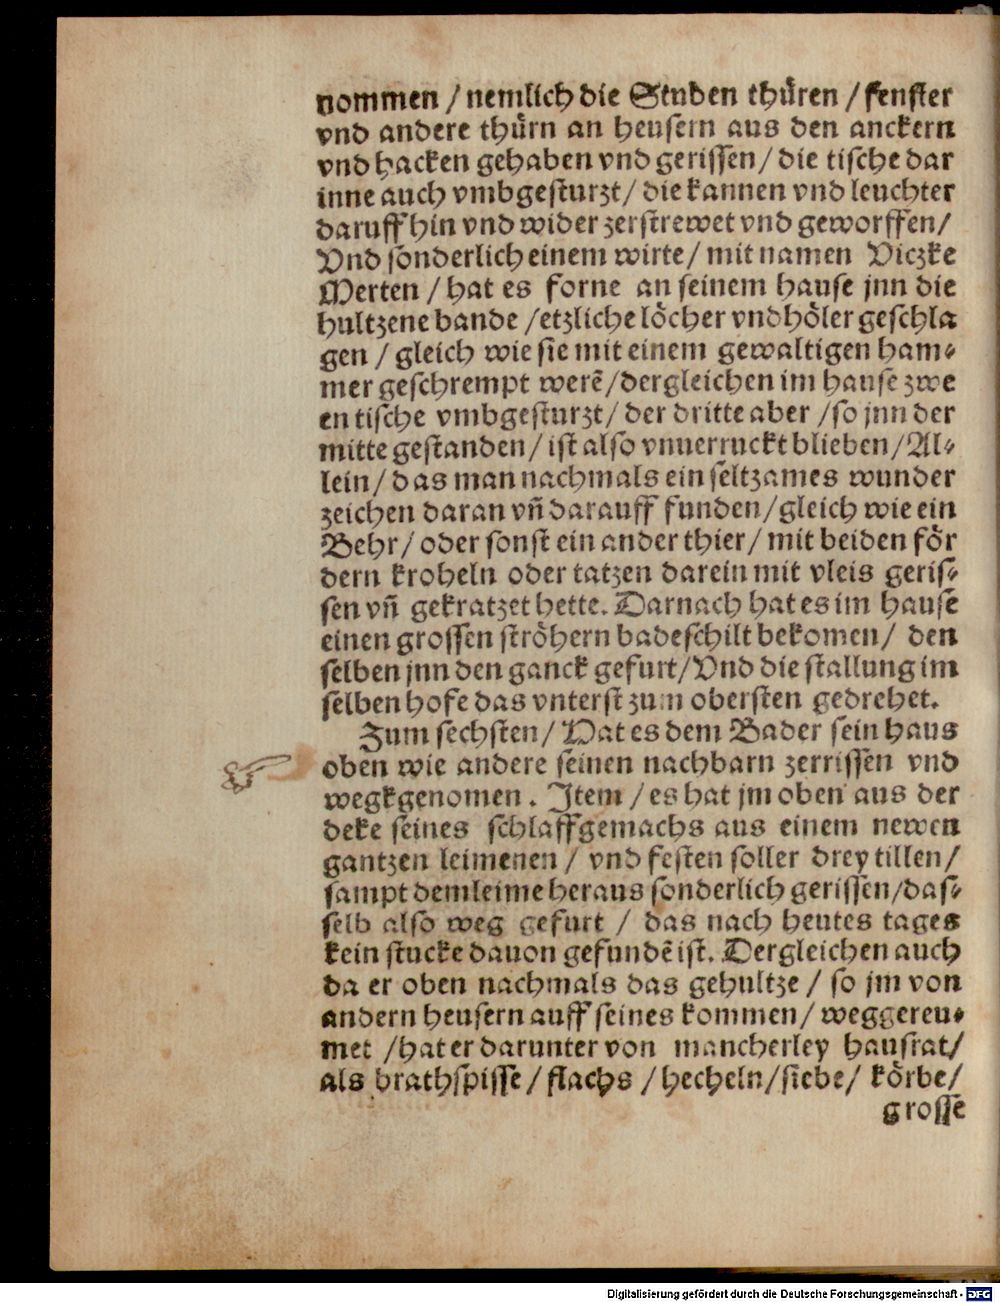 nommen / nemlich die Stuben thüren / fenster
vnd andere thürn an heusern aus den anckern
vnd hacken gehaben vnd gerissen / die tische dar
inne auch vmbgesturzt / die kannen vnd leuchter
daruff hin vnd wider zerstrewet vnd geworffen /
Vnd sonderlich einem wirte / mit namen Viczke
Merten / hat es forne an seinem hause jnn die
hultzene bande / etzliche löcher vnd höler geschla
gen / gleich wie sie mit einem gewaltigen ham⸗
mer geschrempt werē / dergleichen im hause zwe
en tische vmbgesturzt / der dritte aber / so jnn der
mitte gestanden / ist also vnuerruckt blieben / Al⸗
lein / das man nachmals ein seltzames wunder
zeichen daran vñ darauff funden / gleich wie ein
Behr / oder sonst ein ander thier / mit beiden för
dern kroheln oder tatzen darein mit vleis geris⸗
sen vñ gekratzet hette. Darnach hat es im hause
einen grossen ströhern badeschilt bekomen / den
selben jnn den ganck gefurt / Vnd die stallung im
selben hofe das vnterst zum obersten gedrehet.
Zum sechsten / Hat es dem Bader sein haus
oben wie andere seinen nachbarn zerrissen vnd
wegkgenomen. Item / es hat jm oben aus der
deke seines schlaffgemachs aus einem newen
gantzen leimenen / vnd festen soller drey tillen /
sampt dem leime heraus sonderlich gerissen / das⸗
selb also weg gefurt / das nach heutes tages
kein stucke dauon gefundē ist. Dergleichen auch
da er oben nachmals das gehultze / so jm von
andern heusern auff seines kommen / weggereu⸗
met / hat er darunter von mancherley hausrat /
als brathspisse / flachs / hecheln / siebe / körbe /
grosse
Digitalisierung gefördert durch die Deutsche Forschungsgemeinschaft - DFG